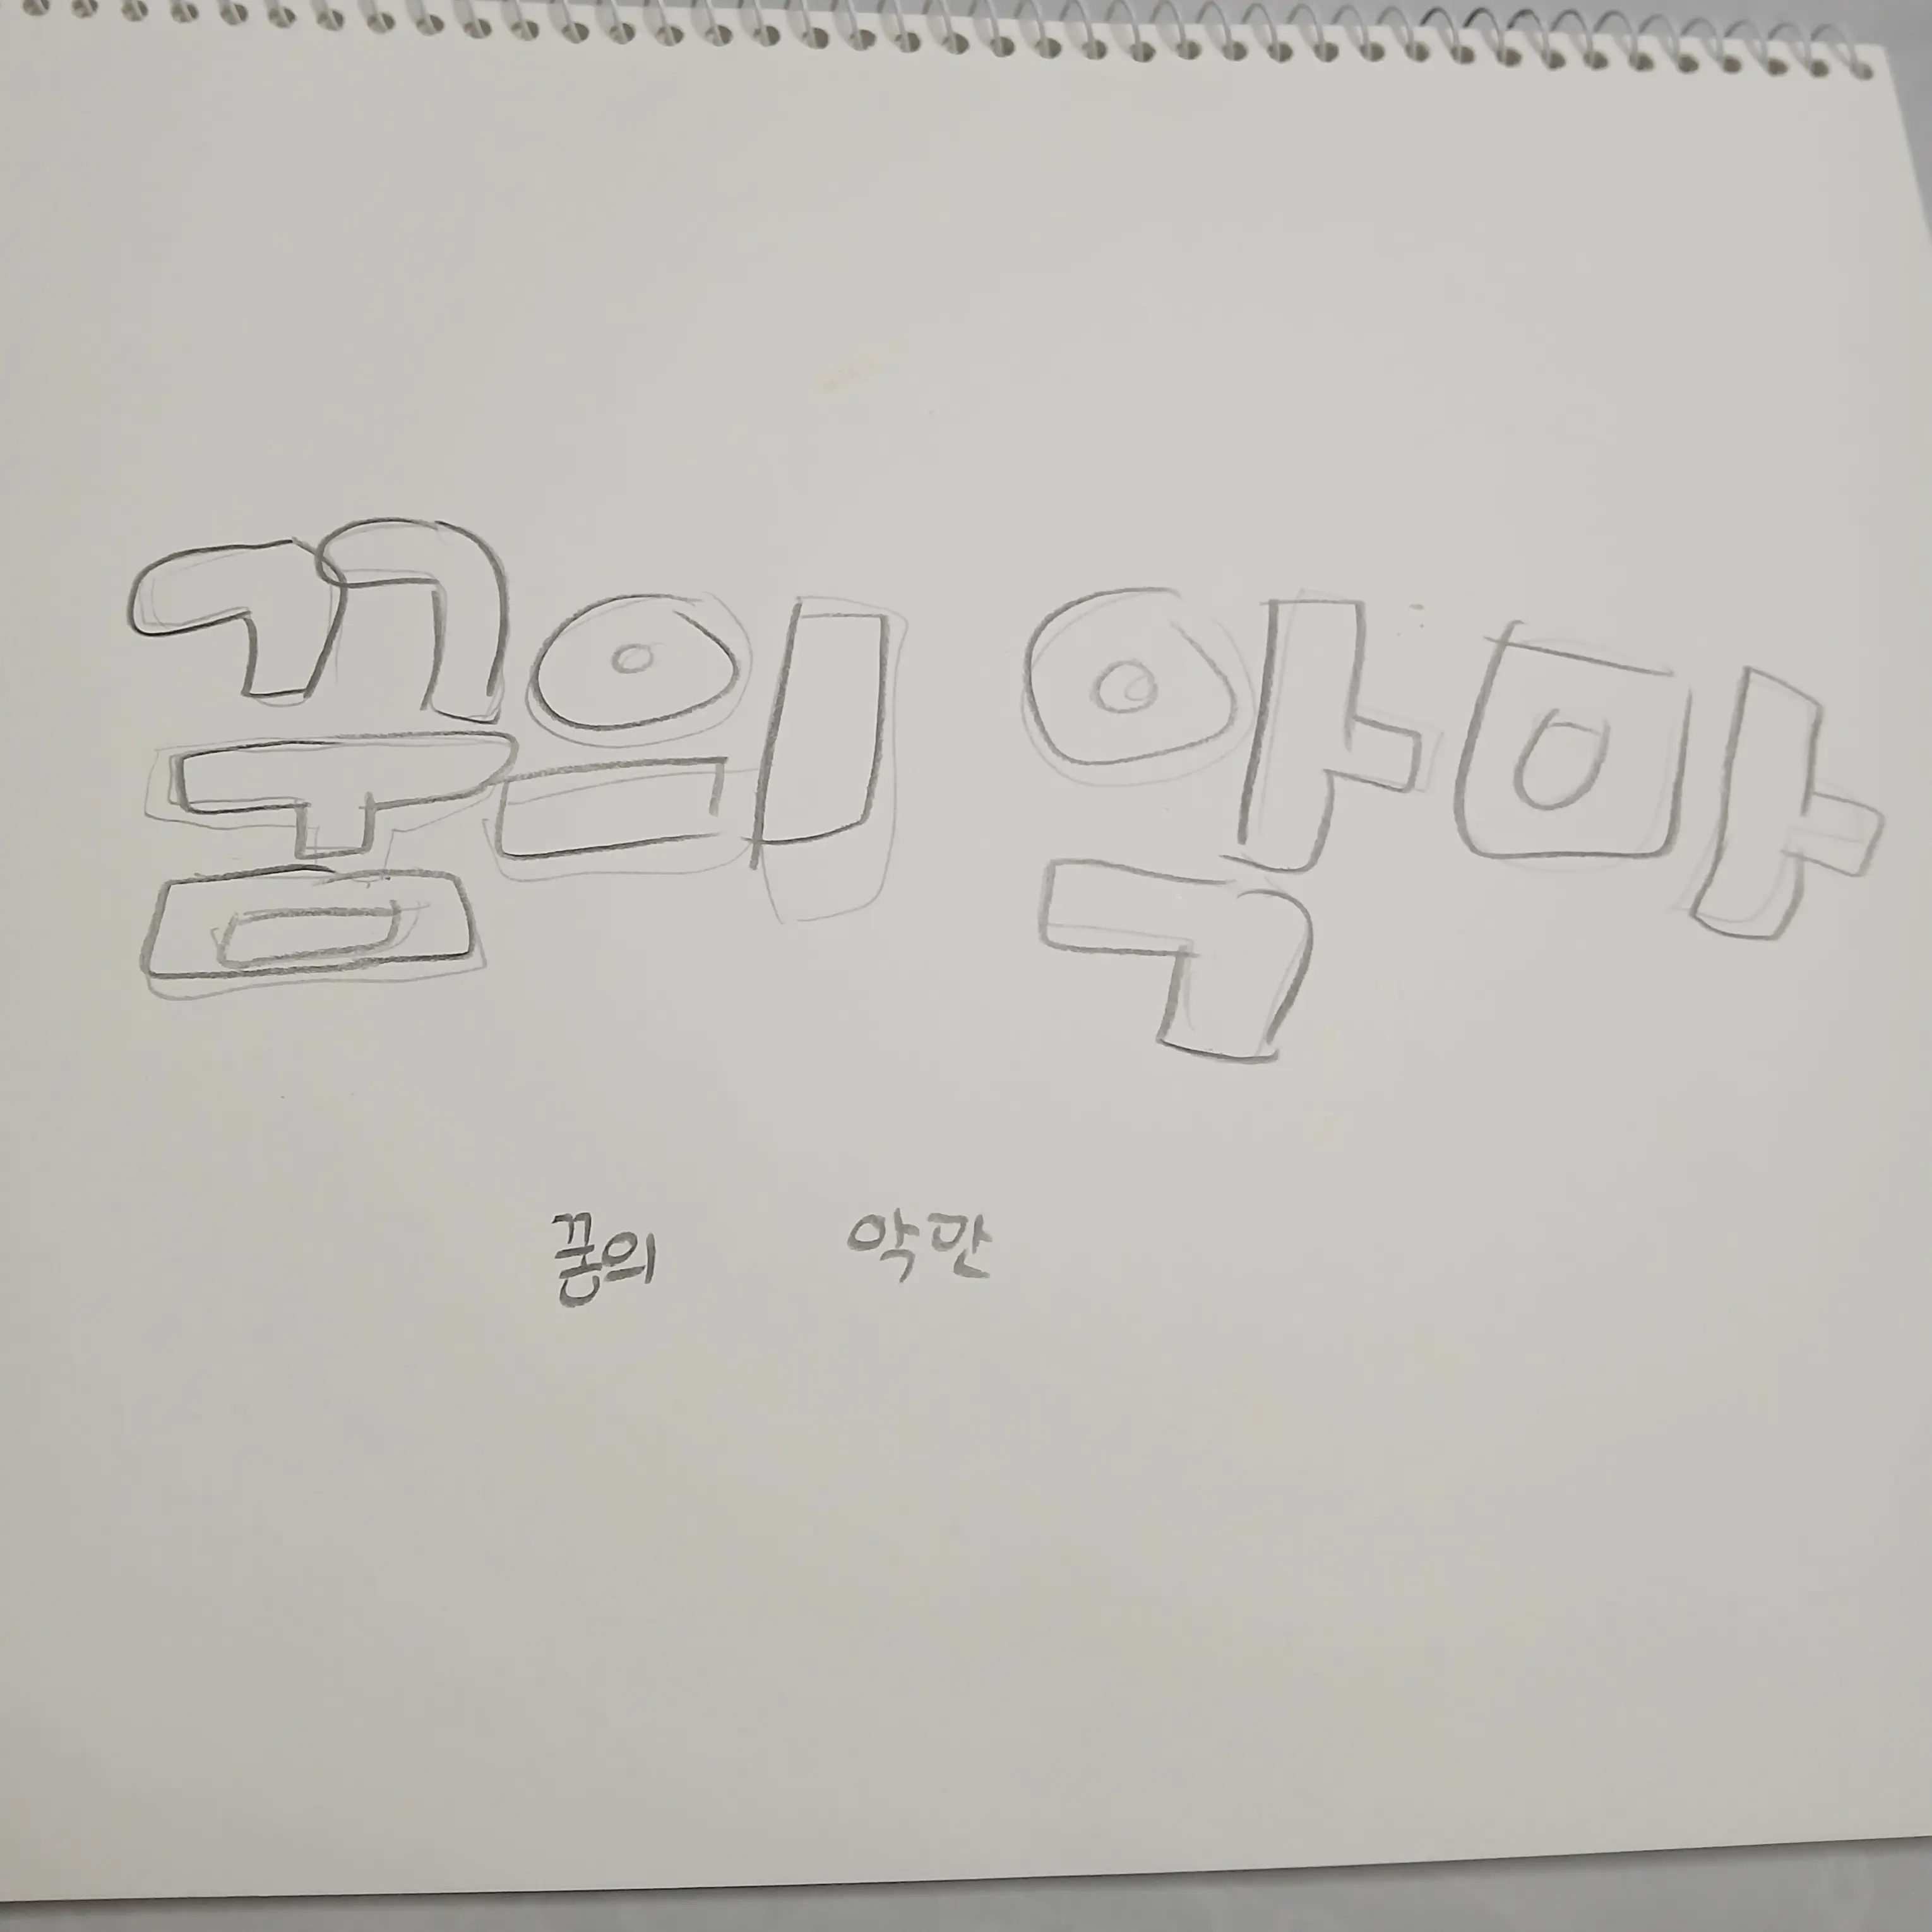 꿈의 악마
꿈의 악만